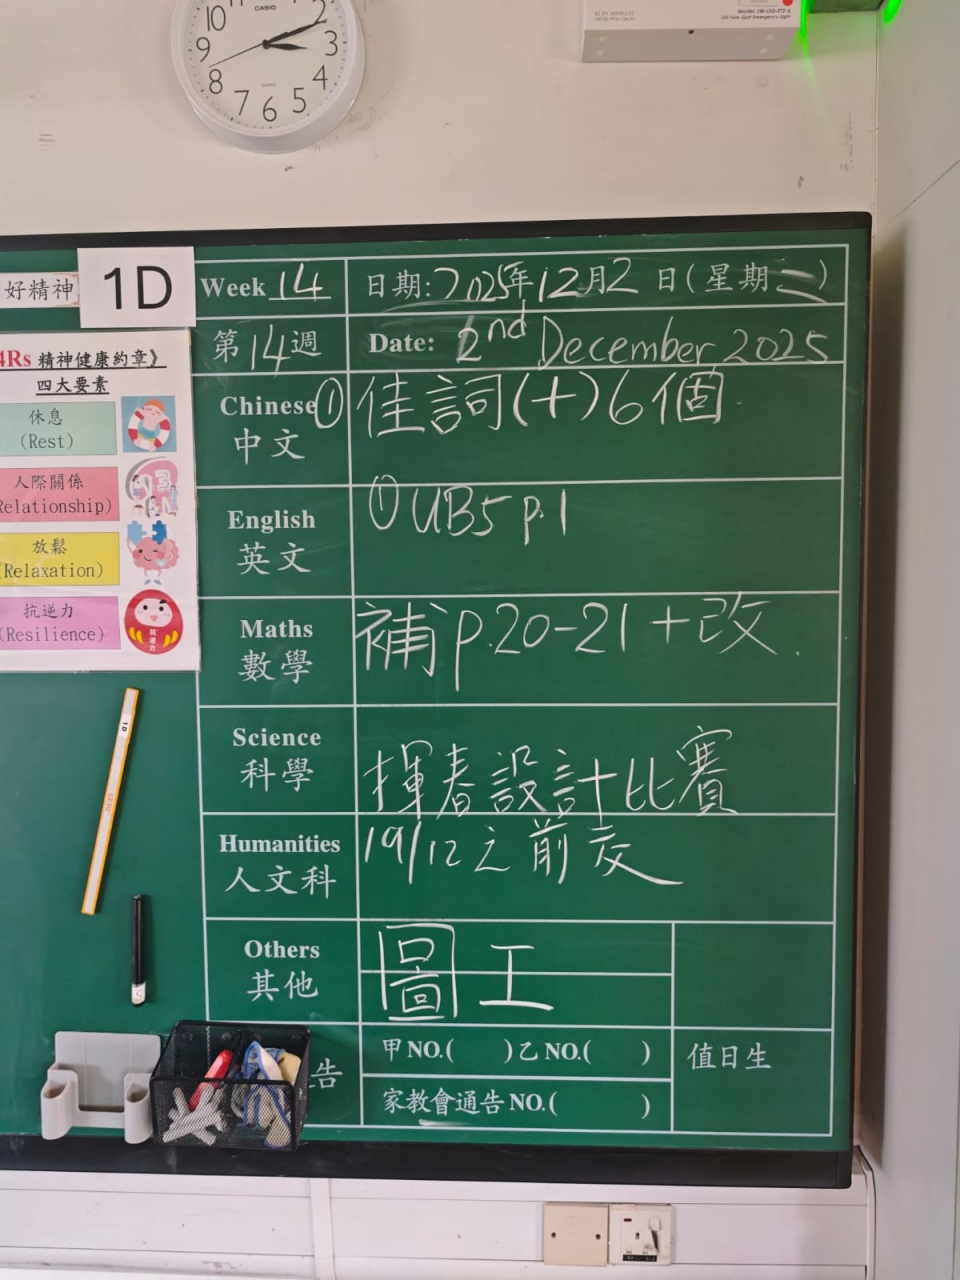 10
CASIO
2
9
3
QUARTZ
8
4
7
6
5
好精神
1D
4Rs 精神健康約章》
四大要素
休息
(Rest)
人際關係
Relationship)
放鬆
(Relaxation)
抗逆力
(Resilience)
抗逆力
1D
Week 14
日期: 2025年12月2日(星期二)
第14週
Date: 2nd December 2025
Chinese
中文
① 佳詞(十)6個
English
英文
① UB5 p.1
Maths
數學
補 p.20-21 + 改.
Science
科學
揮春設計比賽
Humanities
人文科
19/12之前交
Others
其他
圖工
告
甲NO.( )乙NO.( )
家教會通告NO.( )
值日生